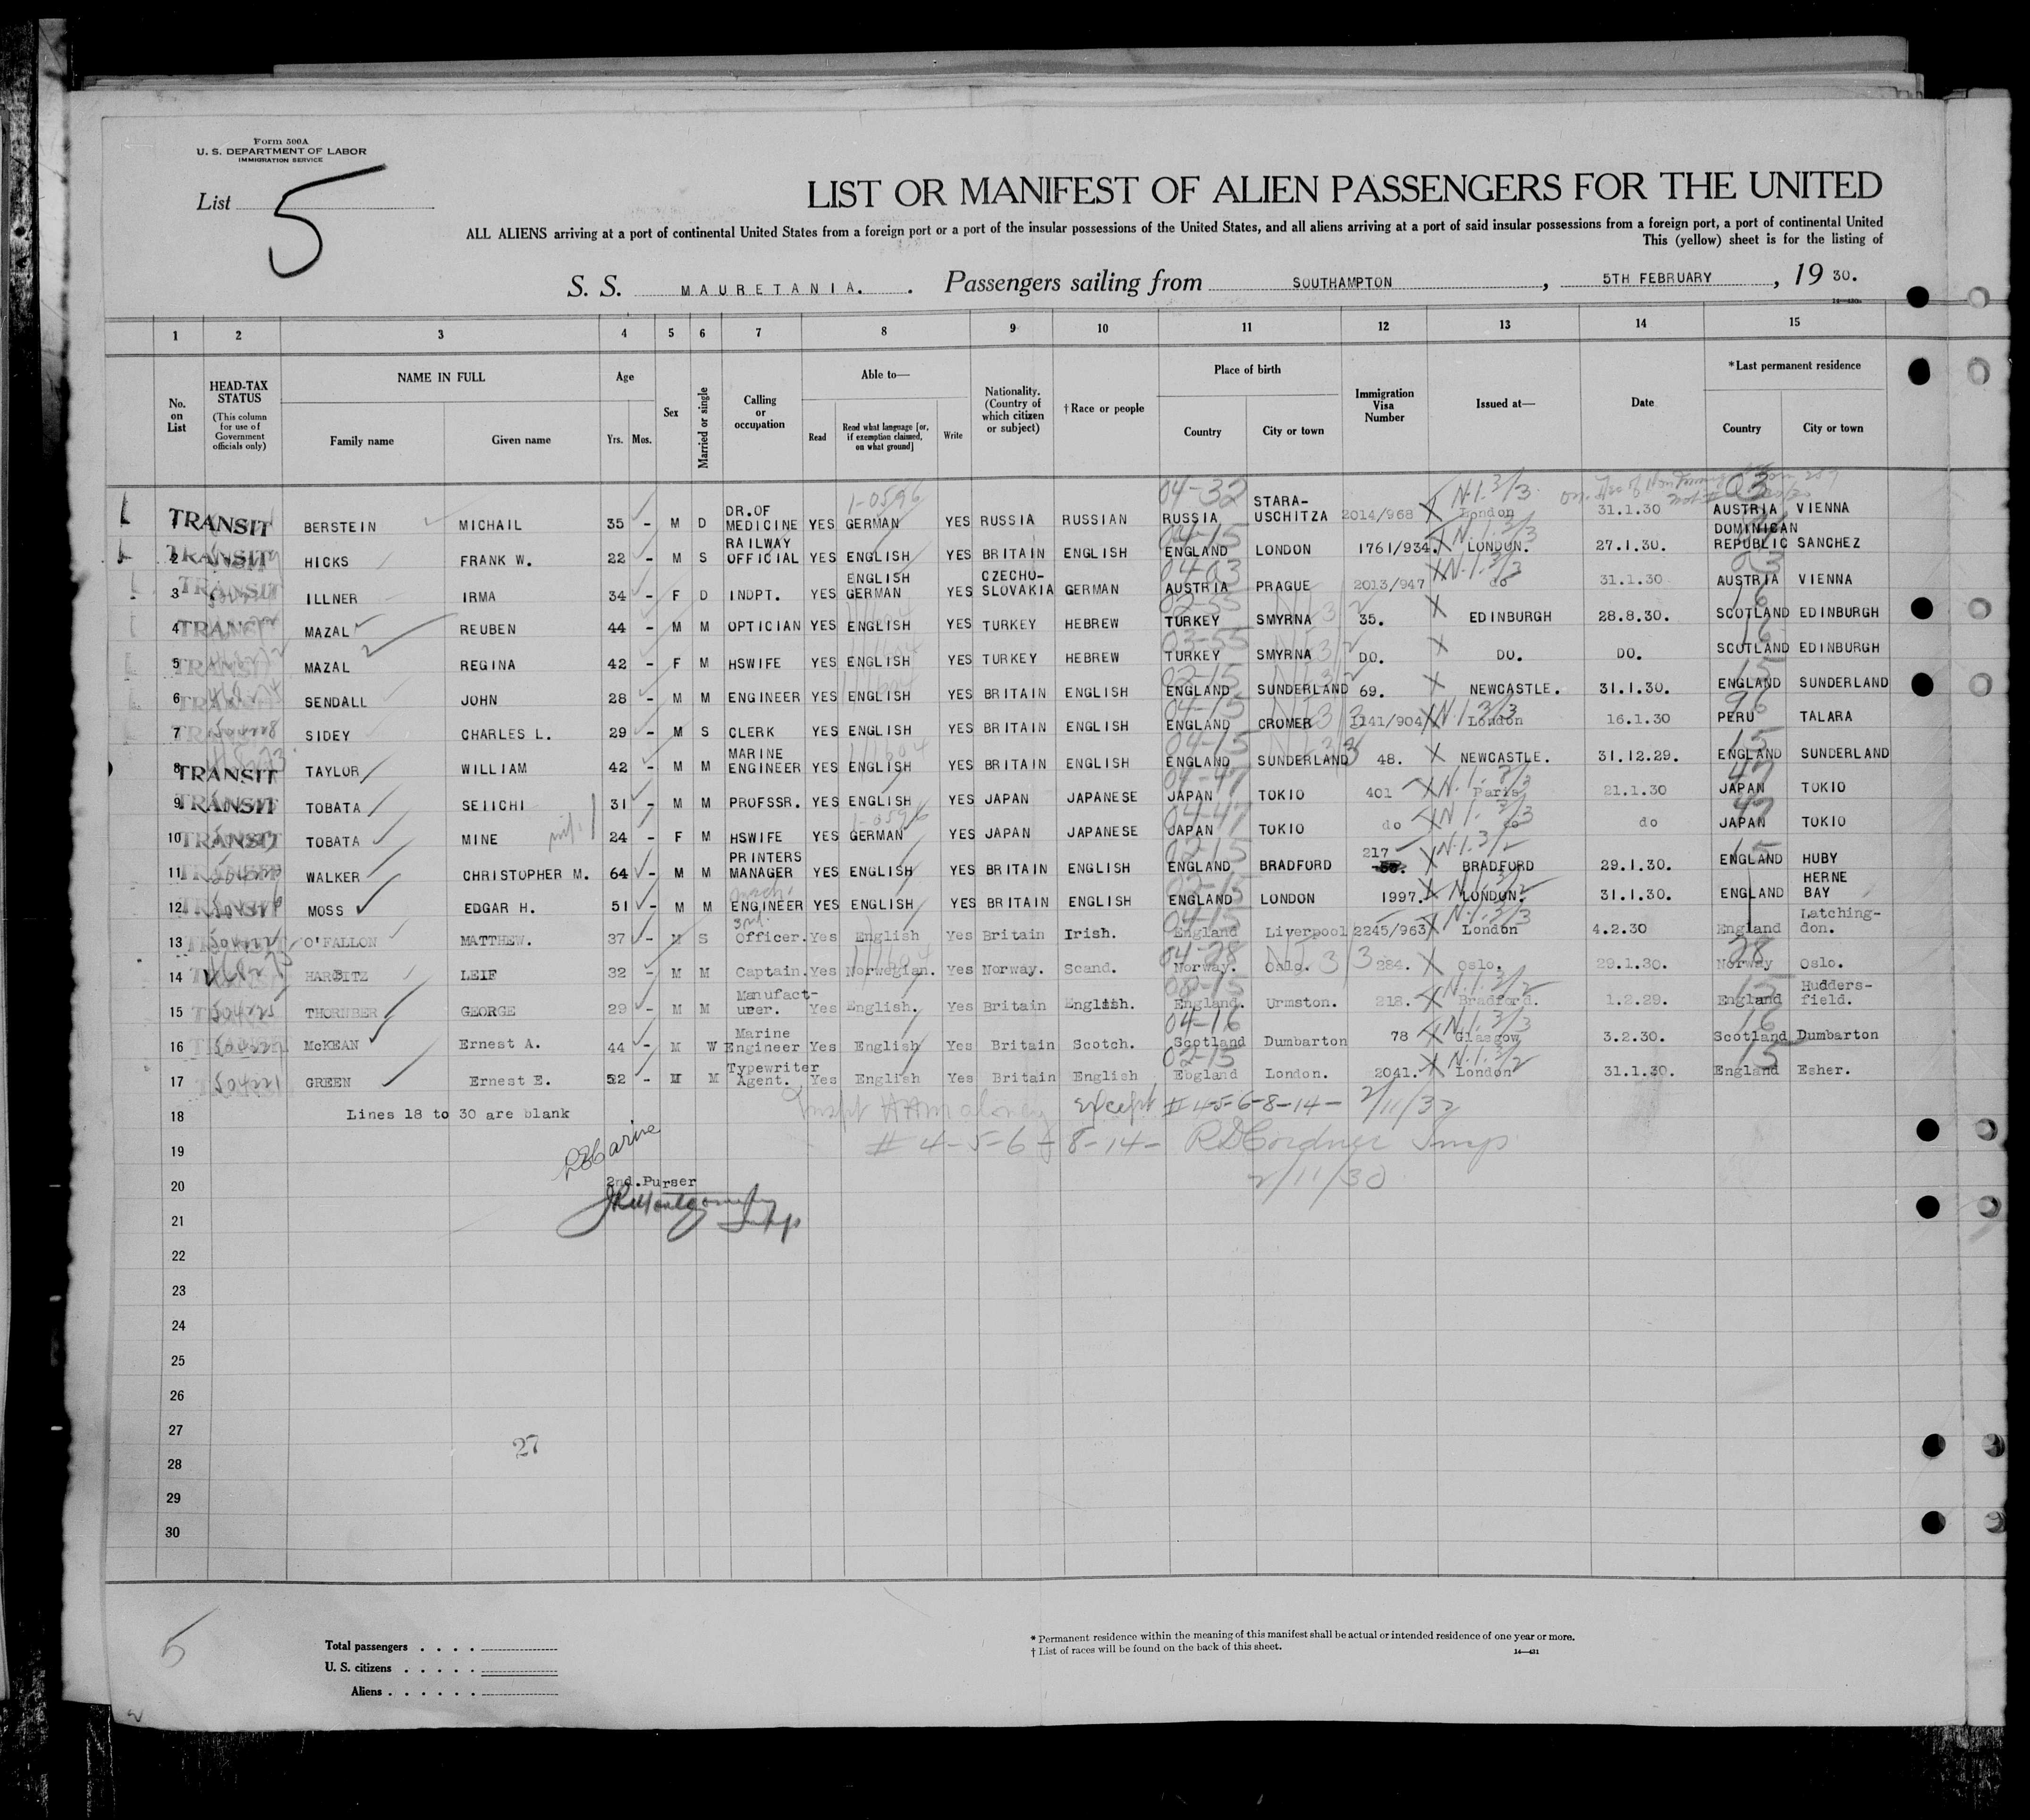 Form 500A
U. S. DEPARTMENT OF LABOR
IMMIGRATION SERVICE
List 5
LIST OR MANIFEST OF ALIEN PASSENGERS FOR THE UNITED
ALL ALIENS arriving at a port of continental United States from a foreign port or a port of the insular possessions of the United States, and all aliens arriving at a port of said insular possessions from a foreign port, a port of continental United
This (yellow) sheet is for the listing of
S. S. MAURETANIA. . Passengers sailing from SOUTHAMPTON , 5TH FEBRUARY , 19 30.
1 2 3 4 5 6 7 8 9 10 11 12 13 14 15
No. on List
HEAD-TAX STATUS
(This column for use of Government officials only)
NAME IN FULL
Family name Given name
Age
Yrs. Mos.
Sex
Married or single
Calling or occupation
Able to—
Read Read what language [or, if exemption claimed, on what ground] Write
Nationality. (Country of which citizen or subject)
† Race or people
Place of birth
Country City or town
Immigration Visa Number
Issued at—
Date
* Last permanent residence
Country City or town
TRANSIT BERSTEIN MICHAIL 35 - M D DR.OF MEDICINE YES GERMAN 1-0596 YES RUSSIA RUSSIAN 04-32 RUSSIA STARA-USCHITZA 2014/968 X N.I. 3/3 London 31.1.30 03 AUSTRIA VIENNA
2 TRANSIT HICKS FRANK W. 22 - M S RAILWAY OFFICIAL YES ENGLISH YES BRITAIN ENGLISH 04-15 ENGLAND LONDON 1761/934. X N.I. 3/3 LONDON. 27.1.30. DOMINICAN REPUBLIC SANCHEZ
3 TRANSIT ILLNER IRMA 34 - F D INDPT. YES ENGLISH GERMAN YES CZECHO-SLOVAKIA GERMAN 04-03 AUSTRIA PRAGUE 2013/947 X N.I. 3/3 do 31.1.30 03 AUSTRIA VIENNA
4 TRANSIT MAZAL REUBEN 44 - M M OPTICIAN YES ENGLISH YES TURKEY HEBREW 02-55 TURKEY SMYRNA 35. X EDINBURGH 28.8.30. 16 SCOTLAND EDINBURGH
5 TRANSIT MAZAL REGINA 42 - F M HSWIFE YES ENGLISH YES TURKEY HEBREW 02-55 TURKEY SMYRNA DO. X DO. DO. 16 SCOTLAND EDINBURGH
6 TRANSIT SENDALL JOHN 28 - M M ENGINEER YES ENGLISH YES BRITAIN ENGLISH 02-15 ENGLAND SUNDERLAND 69. X NEWCASTLE. 31.1.30. 15 ENGLAND SUNDERLAND
7 SIDEY CHARLES L. 29 - M S CLERK YES ENGLISH YES BRITAIN ENGLISH 04-15 ENGLAND CROMER 1141/904 X N.I. 3/3 London 16.1.30 96 PERU TALARA
8 TRANSIT TAYLOR WILLIAM 42 - M M MARINE ENGINEER YES ENGLISH YES BRITAIN ENGLISH 04-15 ENGLAND SUNDERLAND 48. X NEWCASTLE. 31.12.29. 15 ENGLAND SUNDERLAND
9 TRANSIT TOBATA SEIICHI 31 - M M PROFSSR. YES ENGLISH YES JAPAN JAPANESE 04-47 JAPAN TOKIO 401 X N.I. 3/3 Paris 21.1.30 47 JAPAN TOKIO
10 TRANSIT TOBATA MINE 24 - F M HSWIFE YES GERMAN 1-0596 YES JAPAN JAPANESE 04-47 JAPAN TOKIO do X N.I. 3/3 do do 47 JAPAN TOKIO
11 WALKER CHRISTOPHER M. 64 - M M PRINTERS MANAGER YES ENGLISH YES BRITAIN ENGLISH 02-15 ENGLAND BRADFORD 217 X N.I. 3/2 BRADFORD 29.1.30. 15 ENGLAND HUBY
12 MOSS EDGAR H. 51 - M M ENGINEER YES ENGLISH YES BRITAIN ENGLISH 02-15 ENGLAND LONDON 1997. X N.I. 3/2 LONDON. 31.1.30. ENGLAND HERNE BAY
13 O'FALLON MATTHEW. 37 - M S 3rd. Officer. Yes English Yes Britain Irish. 04-15 England Liverpool 2245/963 X N.I. 3/3 London 4.2.30 England Latching-don.
14 LEIF 32 - M M Captain. Yes Norwegian. Yes Norway. Scand. 04-28 Norway. Oslo. 284. X Oslo. 29.1.30. 28 Norway Oslo.
15 THORNBER GEORGE 29 - M M Manufact-urer. Yes English. Yes Britain English. 08-15 England. Urmston. 218. X N.I. 3/2 Bradford. 1.2.29. 15 England Hudders-field.
16 McKEAN Ernest A. 44 - M W Marine Engineer Yes English Yes Britain Scotch. 04-16 Scotland Dumbarton 78 X N.I. 3/3 Glasgow 3.2.30. 16 Scotland Dumbarton
17 GREEN Ernest E. 52 - M M Typewriter Agent. Yes English Yes Britain English 02-15 Ebgland London. 2041. X N.I. 3/2 London 31.1.30. 15 England Esher.
18 Lines 18 to 30 are blank except # 4-5-6-8-14-
19 # 4-5-6-8-14- 
20 2nd.Purser 2/11/30
21
22
23
24
25
26
27
27
28
29
30
5
Total passengers . . . .
U. S. citizens . . . . .
Aliens . . . . . .
* Permanent residence within the meaning of this manifest shall be actual or intended residence of one year or more.
† List of races will be found on the back of this sheet.
14—431